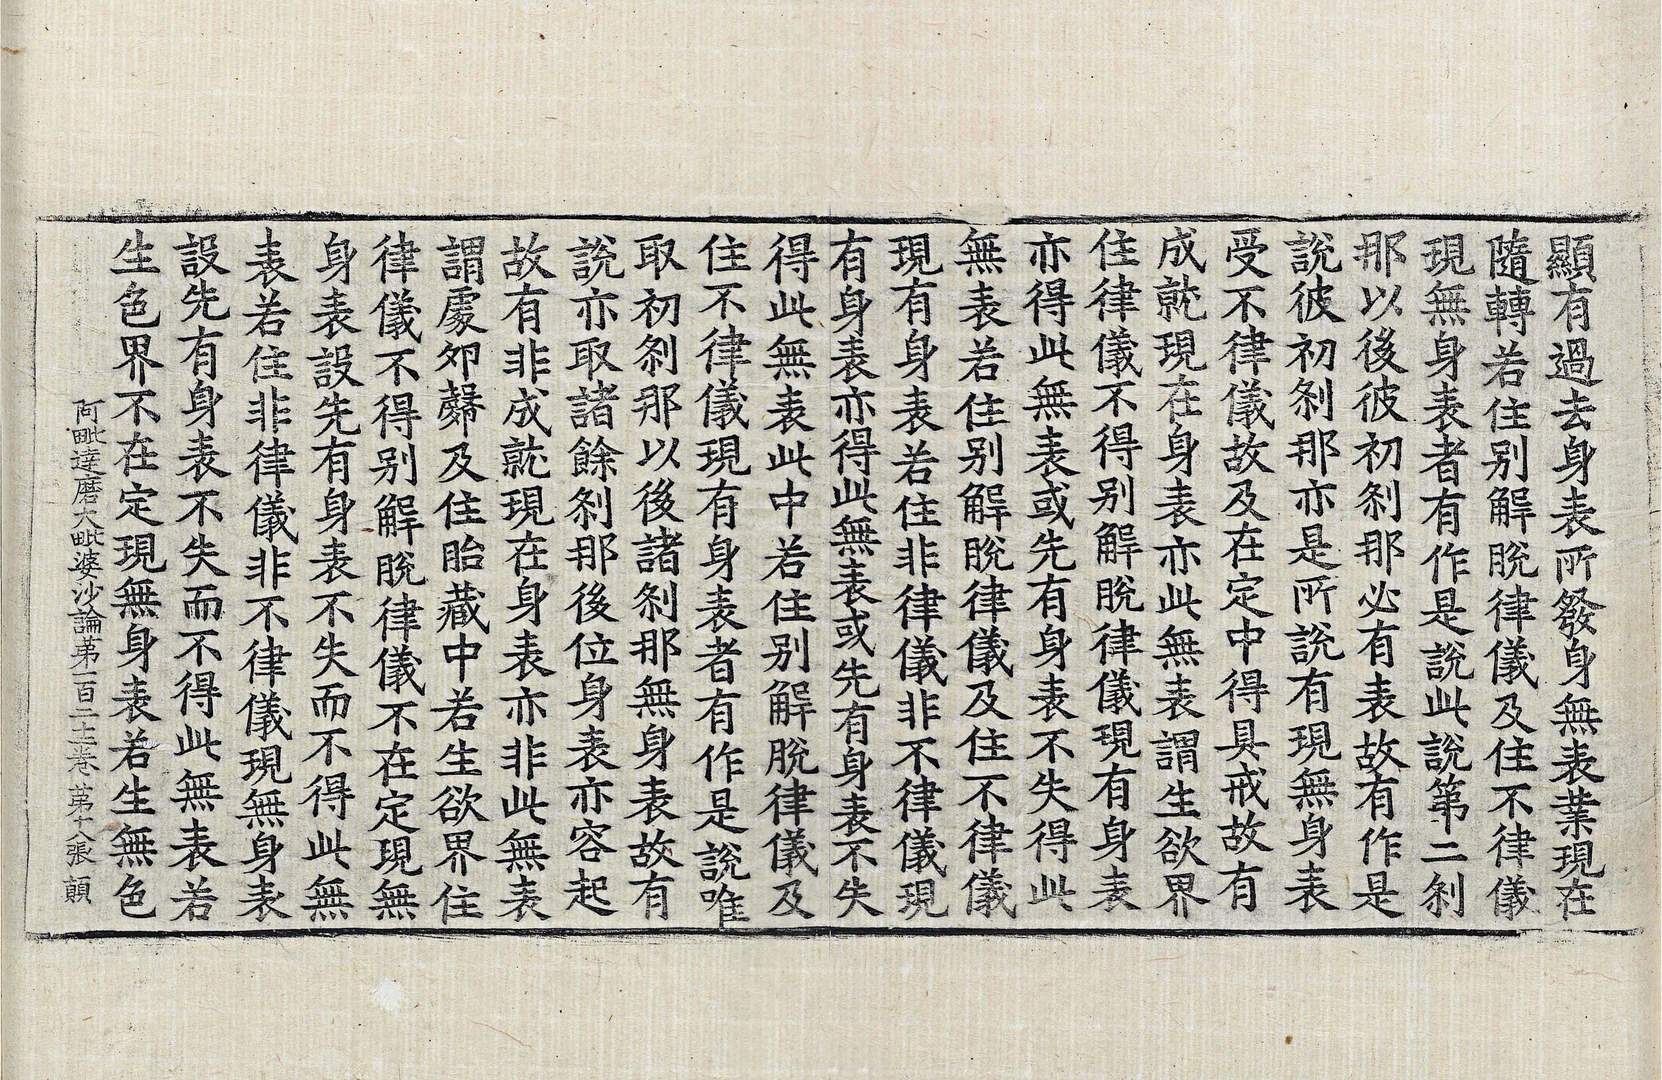 顯有過去身表所發身無表業現在
隨轉若住別解脫律儀及住不律儀
現無身表者有作是說此說第二刹
那以後彼初刹那必有表故有作是
說彼初刹那亦是所說有現無身表
受不律儀故及在定中得具戒故有
成就現在身表亦此無表謂生欲界
住律儀不得別解脫律儀現有身表
亦得此無表或先有身表不失得此
無表若住別解脫律儀及住不律儀
現有身表若住非律儀非不律儀現
有身表亦得此無表或先有身表不失
得此無表此中若住別解脫律儀及
住不律儀現有身表者有作是說唯
取初刹那以後諸刹那無身表故有
說亦取諸餘刹那後位身表亦容起
故有非成就現在身表亦非此無表
謂處卵㲉及住胎藏中若生欲界住
律儀不得別解脫律儀不在定現無
身表設先有身表不失而不得此無
表若住非律儀非不律儀現無身表
設先有身表不失而不得此無表若
生色界不在定現無身表若生無色
阿毗達磨大毗婆沙論第一百二十二卷 第十六張 顛